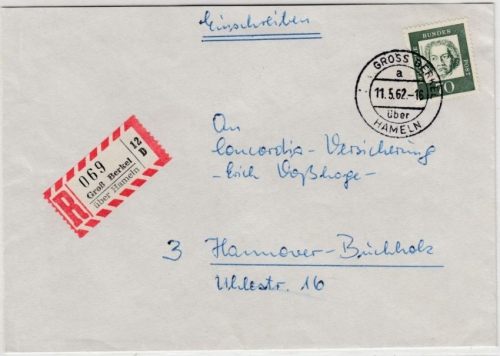 Einschreiben
DEUTSCHE BUNDES POST
70
GROSS BERKEL
a
11.5.62.-16
über
HAMELN
R
069
12
D
Groß Berkel
über Hameln
An
Concordia-Versicherung
-Erich Voßhage-
3 Hannover-Buchholz
Uhlestr. 16